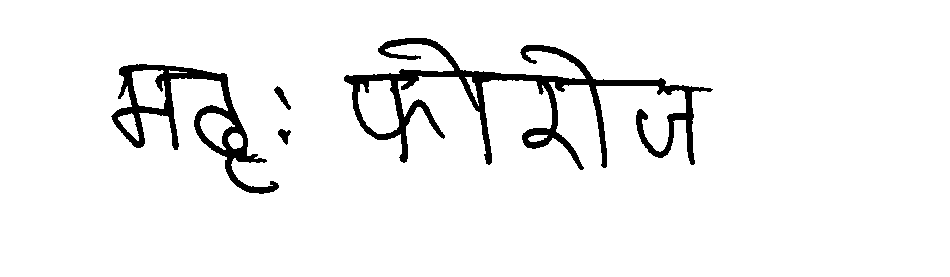 मदृः फोरोज